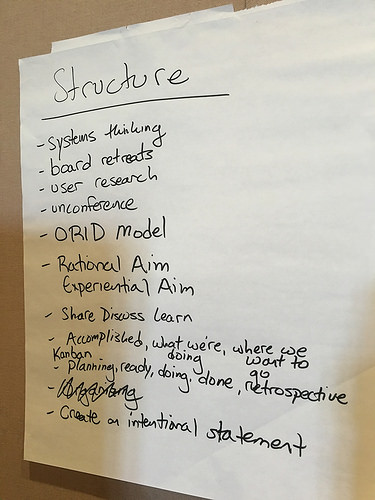 Structure
- Systems thinking
- board retreats
- user research
- unconference
- ORID Model
- Rational Aim
Experiential Aim
- Share Discuss Learn
- Accomplished, what we're, where we
doing want to
go
Kanban
- Planning, ready, doing, done, retrospective
-
- Create an intentional statement